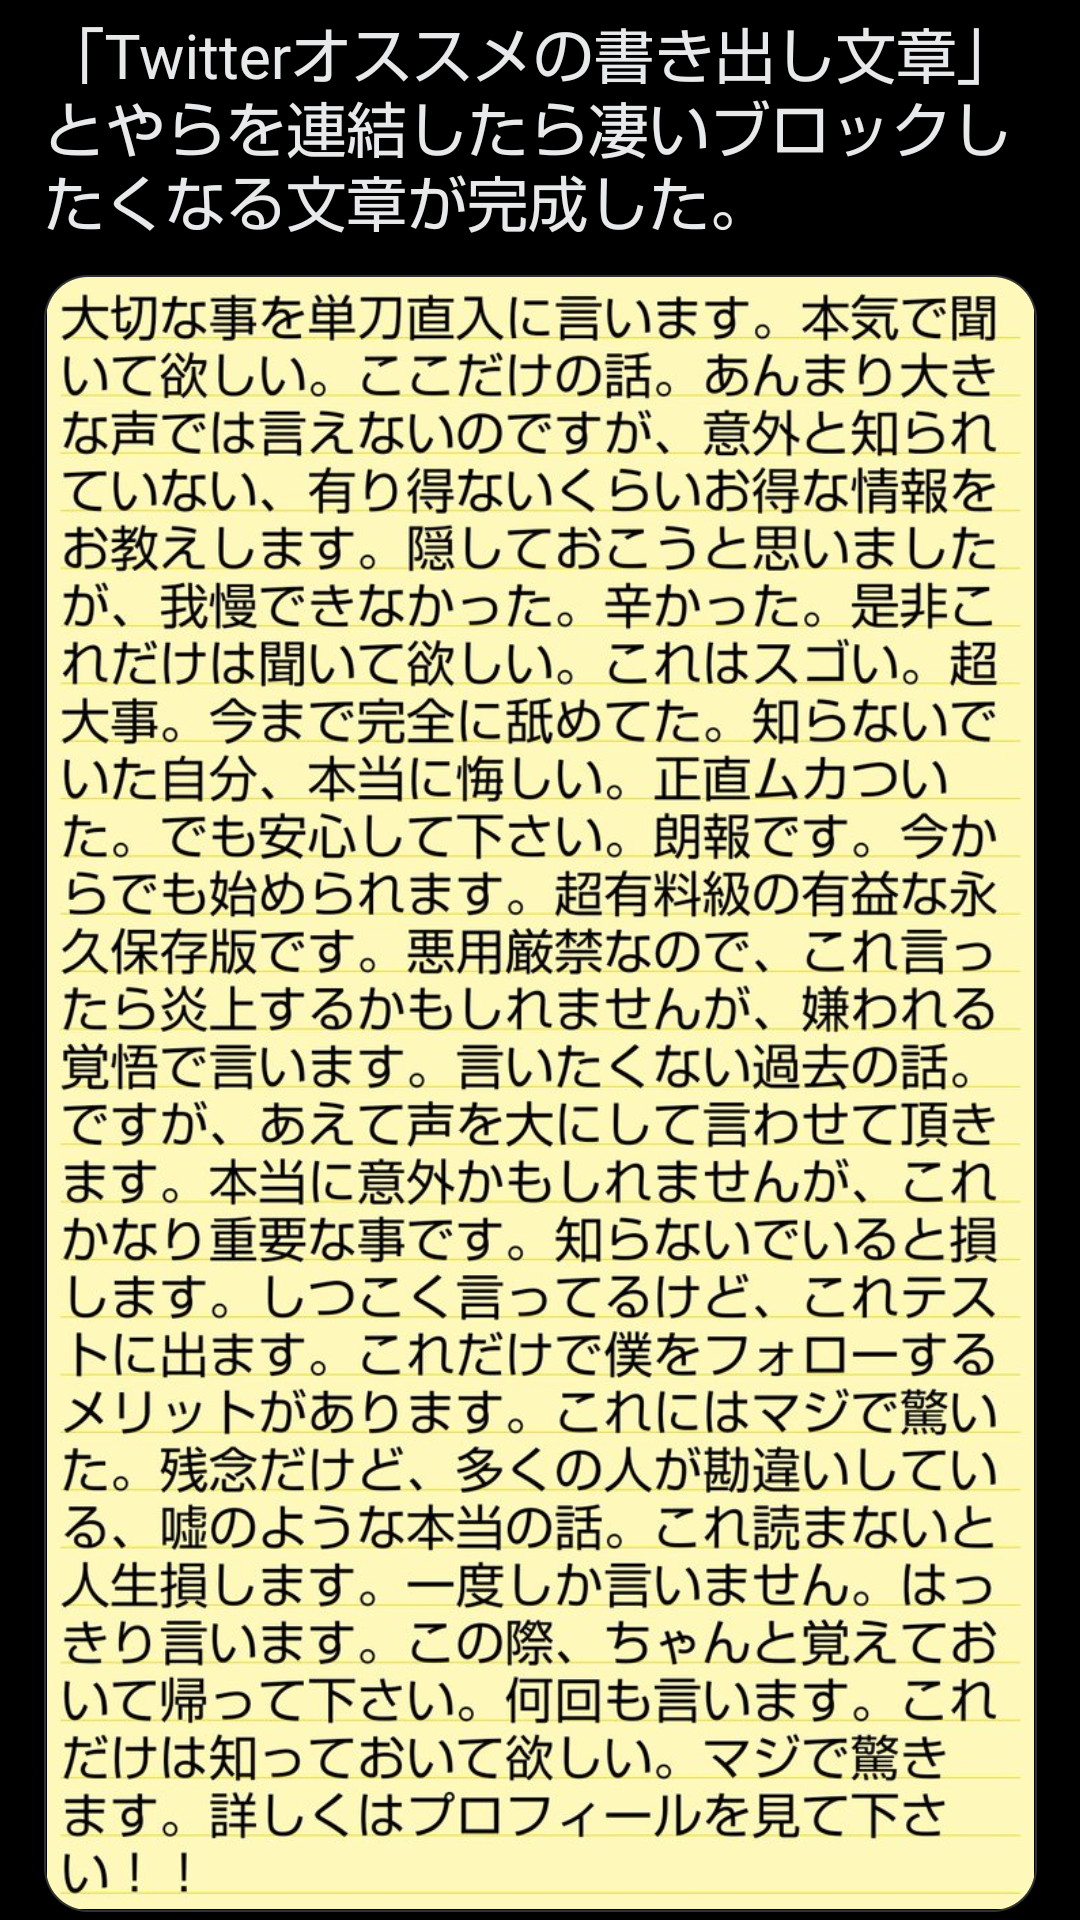 「Twitterオススメの書き出し文章」
とやらを連結したら凄いブロックし
たくなる文章が完成した。
大切な事を単刀直入に言います。本気で聞
いて欲しい。ここだけの話。あんまり大き
な声では言えないのですが、意外と知られ
ていない、有り得ないくらいお得な情報を
お教えします。隠しておこうと思いました
が、我慢できなかった。辛かった。是非こ
れだけは聞いて欲しい。これはスゴい。超
大事。今まで完全に舐めてた。知らないで
いた自分、本当に悔しい。正直ムカつい
た。でも安心して下さい。朗報です。今か
らでも始められます。超有料級の有益な永
久保存版です。悪用厳禁なので、これ言っ
たら炎上するかもしれませんが、嫌われる
覚悟で言います。言いたくない過去の話。
ですが、あえて声を大にして言わせて頂き
ます。本当に意外かもしれませんが、これ
かなり重要な事です。知らないでいると損
します。しつこく言ってるけど、これテス
トに出ます。これだけで僕をフォローする
メリットがあります。これにはマジで驚い
た。残念だけど、多くの人が勘違いしてい
る、嘘のような本当の話。これ読まないと
人生損します。一度しか言いません。はっ
きり言います。この際、ちゃんと覚えてお
いて帰って下さい。何回も言います。これ
だけは知っておいて欲しい。マジで驚き
ます。詳しくはプロフィールを見て下さ
い！！